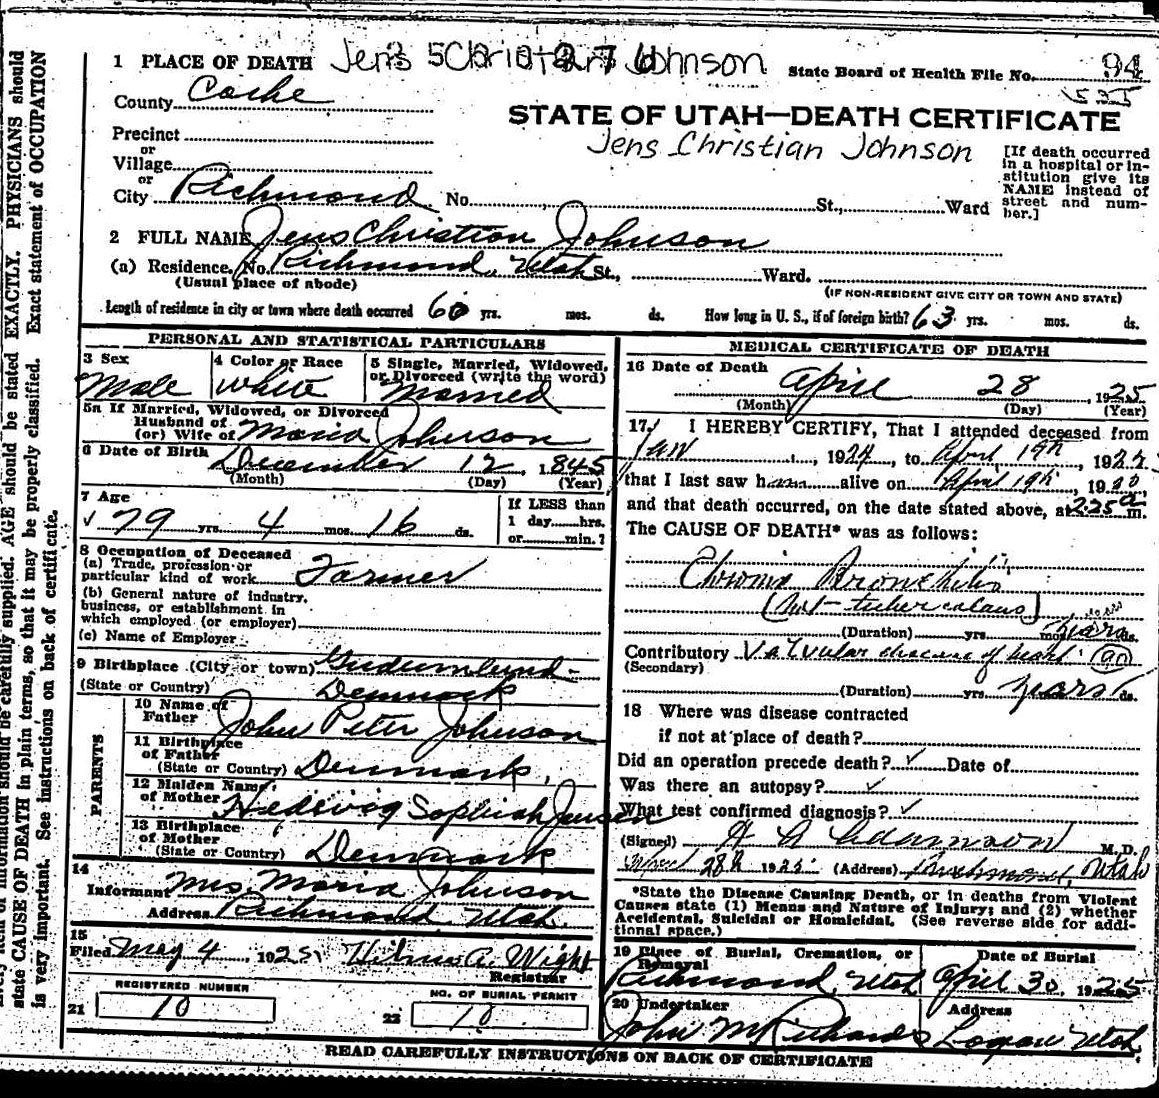 1 PLACE OF DEATH Jens Christian Johnson State Board of Health File No. 94
County Cache
STATE OF UTAH—DEATH CERTIFICATE
Precinct
Jens Christian Johnson
[If death occurred in a hospital or institution give its NAME instead of street and number.]
or
Village
or
City Richmond No. St., Ward
2 FULL NAME Jens Christian Johnson
(a) Residence. No. Richmond, Utah St., Ward.
(Usual place of abode)
(IF NON-RESIDENT GIVE CITY OR TOWN AND STATE)
Length of residence in city or town where death occurred 60 yrs. mos. ds. How long in U. S., if of foreign birth? 63 yrs. mos. ds.
PERSONAL AND STATISTICAL PARTICULARS
3 Sex 4 Color or Race 5 Single, Married, Widowed, or Divorced (write the word)
Male White Married
5a If Married, Widowed, or Divorced
Husband of
(or) Wife of Maria Johnson
6 Date of Birth December 12, 1845
(Month) (Day) (Year)
7 Age If LESS than
79 yrs. 4 mos. 16 ds. 1 day hrs.
or min.?
8 Occupation of Deceased
(a) Trade, profession or
particular kind of work Farmer
(b) General nature of industry,
business, or establishment in
which employed (or employer)
(c) Name of Employer
9 Birthplace (City or town) Gudumlund
(State or Country) Denmark
PARENTS
10 Name of
Father John Peter Johnson
11 Birthplace
of Father
(State or Country) Denmark
12 Maiden Name
of Mother Hedevig Sophiah Jensen
13 Birthplace
of Mother
(State or Country) Denmark
14
Informant Mrs. Maria Johnson
Address Richmond Utah.
15
Filed May 4, 1925, A. Wight
Registrar
REGISTERED NUMBER
21 10
NO. OF BURIAL PERMIT
22 10
MEDICAL CERTIFICATE OF DEATH
16 Date of Death April 28, 1925
(Month) (Day) (Year)
17. I HEREBY CERTIFY, That I attended deceased from
Jan, 1924, to April 19th, 192
that I last saw him alive on April 19th, 19
and that death occurred, on the date stated above, at 2.25 a m.
The CAUSE OF DEATH* was as follows:
Chronic Bronchitis
(Not tuberculous)
(Duration) yrs. mos. years ds.
Contributory Valvular disease of heart. 90
(Secondary)
(Duration) yrs. years ds.
18 Where was disease contracted
if not at place of death?
Did an operation precede death? ✓ Date of
Was there an autopsy? ✓
What test confirmed diagnosis? ✓
(Signed) A Adamson M. D.
28th 1925 (Address) Richmond, Utah
*State the Disease Causing Death, or in deaths from Violent
Causes state (1) Means and Nature of Injury; and (2) whether
Accidental, Suicidal or Homicidal. (See reverse side for addi-
tional space.)
19 Place of Burial, Cremation, or Removal Date of Burial
Richmond, Utah April 30, 1925
20 Undertaker Address
John M Richards Logan Utah.
READ CAREFULLY INSTRUCTIONS ON BACK OF CERTIFICATE
information should be carefully supplied. AGE should be stated EXACTLY. PHYSICIANS should
state CAUSE OF DEATH in plain terms, so that it may be properly classified. Exact statement of OCCUPATION
is very important. See instructions on back of certificate.